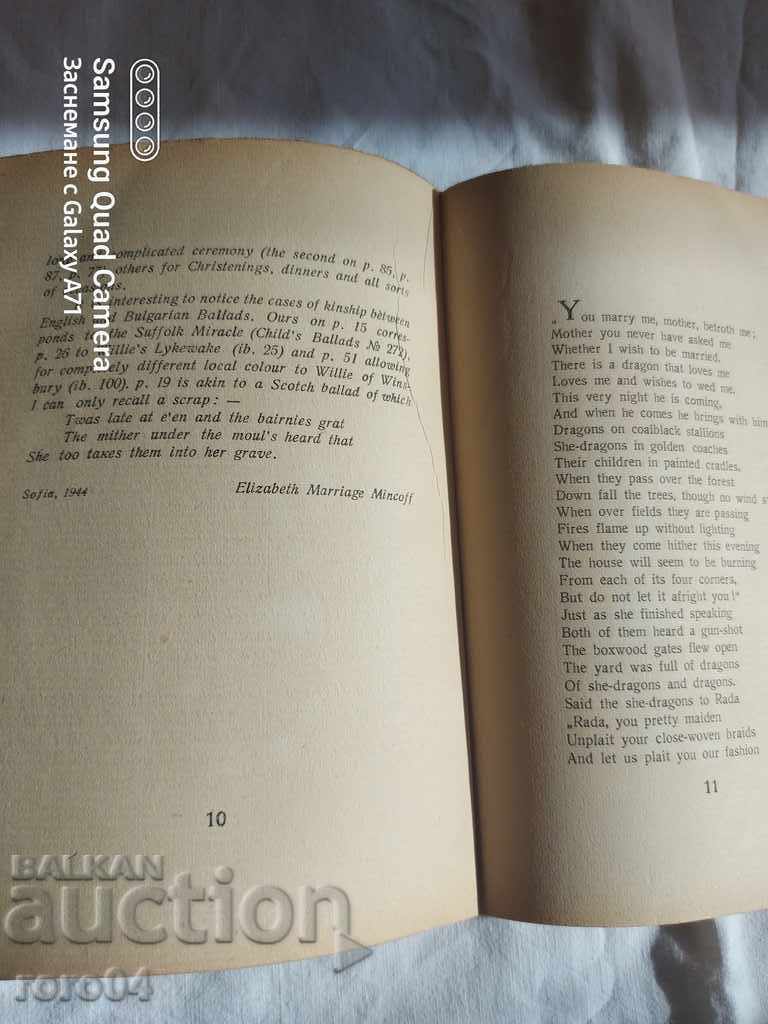 complicated ceremony (the second on p. 85, p.
87, p. others for Christenings, dinners and all sorts
of
interesting to notice the cases of kinship between
English and Bulgarian Ballads. Ours on p. 15 corres-
ponds to the Suffolk Miracle (Child's Ballads № 272),
p. 26 to Willie's Lykewake (ib. 25) and p. 51 allowing
for completely different local colour to Willie of Wins-
bury (ib. 100). p. 19 is akin to a Scotch ballad of which
I can only recall a scrap: —
Twas late at e'en and the bairnies grat
The mither under the moul's heard that
She too takes them into her grave.
Sofia, 1944 Elizabeth Marriage Mincoff
10
„You marry me, mother, betroth me;
Mother you never have asked me
Whether I wish to be married.
There is a dragon that loves me
Loves me and wishes to wed me.
This very night he is coming,
And when he comes he brings with him
Dragons on coalblack stallions
She-dragons in golden coaches
Their children in painted cradles,
When they pass over the forest
Down fall the trees, though no wind
When over fields they are passing
Fires flame up without lighting
When they come hither this evening
The house will seem to be burning
From each of its four corners,
But do not let it afright you!“
Just as she finished speaking
Both of them heard a gun-shot
The boxwood gates flew open
The yard was full of dragons
Of she-dragons and dragons.
Said the she-dragons to Rada
„Rada, you pretty maiden
Unplait your close-woven braids
And let us plait you our fashion
11
Samsung Quad Camera
Заснемане с Galaxy A71
BALKAN
auction
roro04